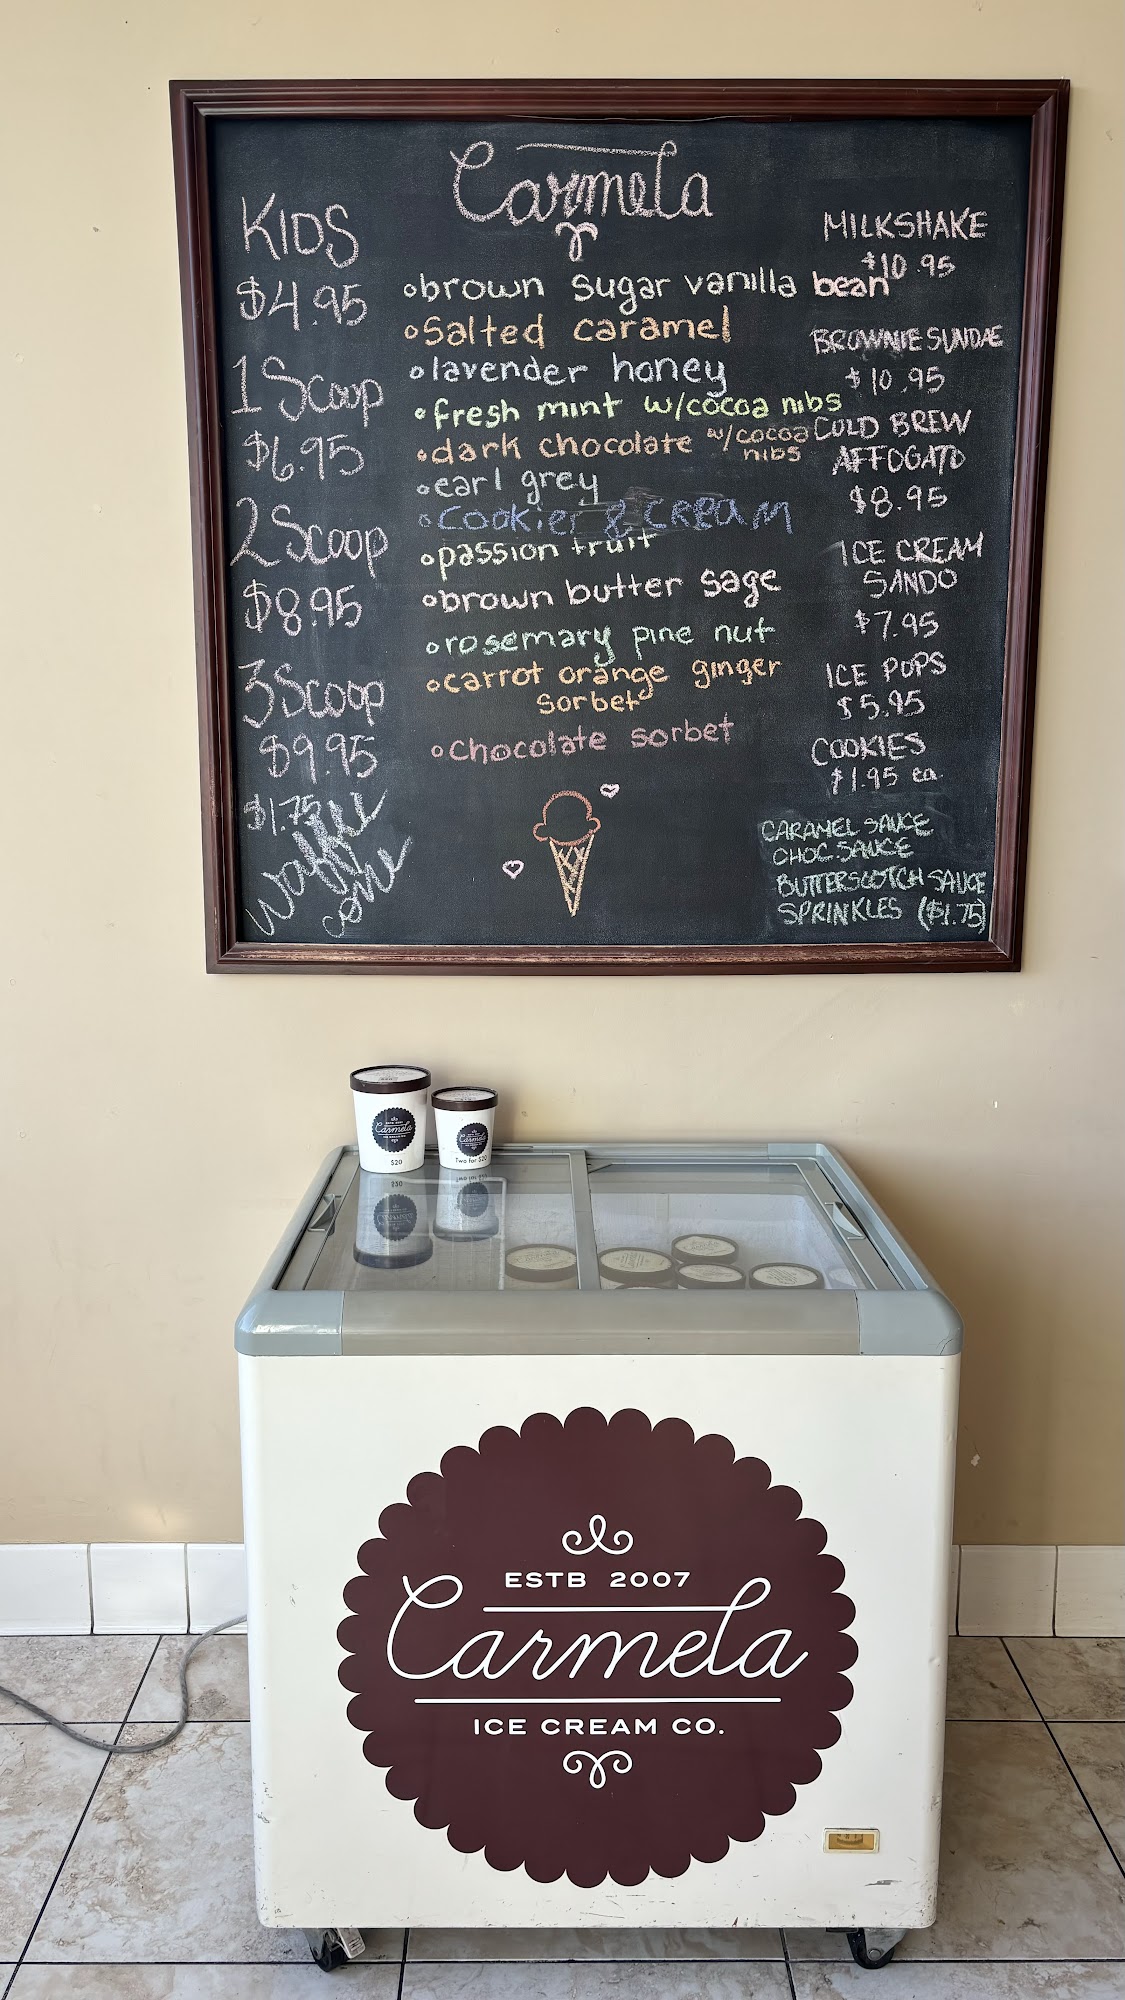 Carmela
KIDS
$4.95
1 Scoop
$6.95
2 Scoop
$8.95
3 Scoop
$9.95
$1.75
waffle
cone
brown sugar vanilla bean
Salted caramel
lavender honey
fresh mint w/cocoa nibs
dark chocolate w/cocoa
nibs
earl grey
Cookies & CREAM
passion fruit
brown butter sage
rosemary pine nut
carrot orange ginger
sorbet
chocolate sorbet
MILKSHAKE
$10.95
BROWNIE SUNDAE
$10.95
COLD BREW
AFFOGATO
$8.95
ICE CREAM
SANDO
$7.95
ICE POPS
$5.95
COOKIES
$1.95 ea.
CARAMEL SAUCE
CHOC. SAUCE
BUTTERSCOTCH SAUCE
SPRINKLES ($1.75)
Carmela
$20
Carmela
Two for $20
ESTB 2007
Carmela
ICE CREAM CO.